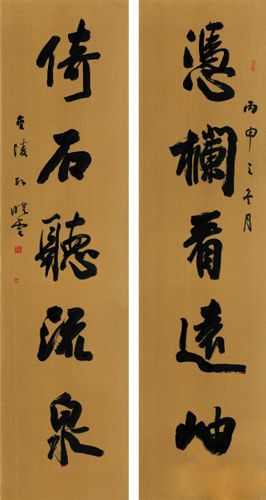 憑欄看遠岫
丙申之冬月
倚石聽流泉
金陵孙晓云